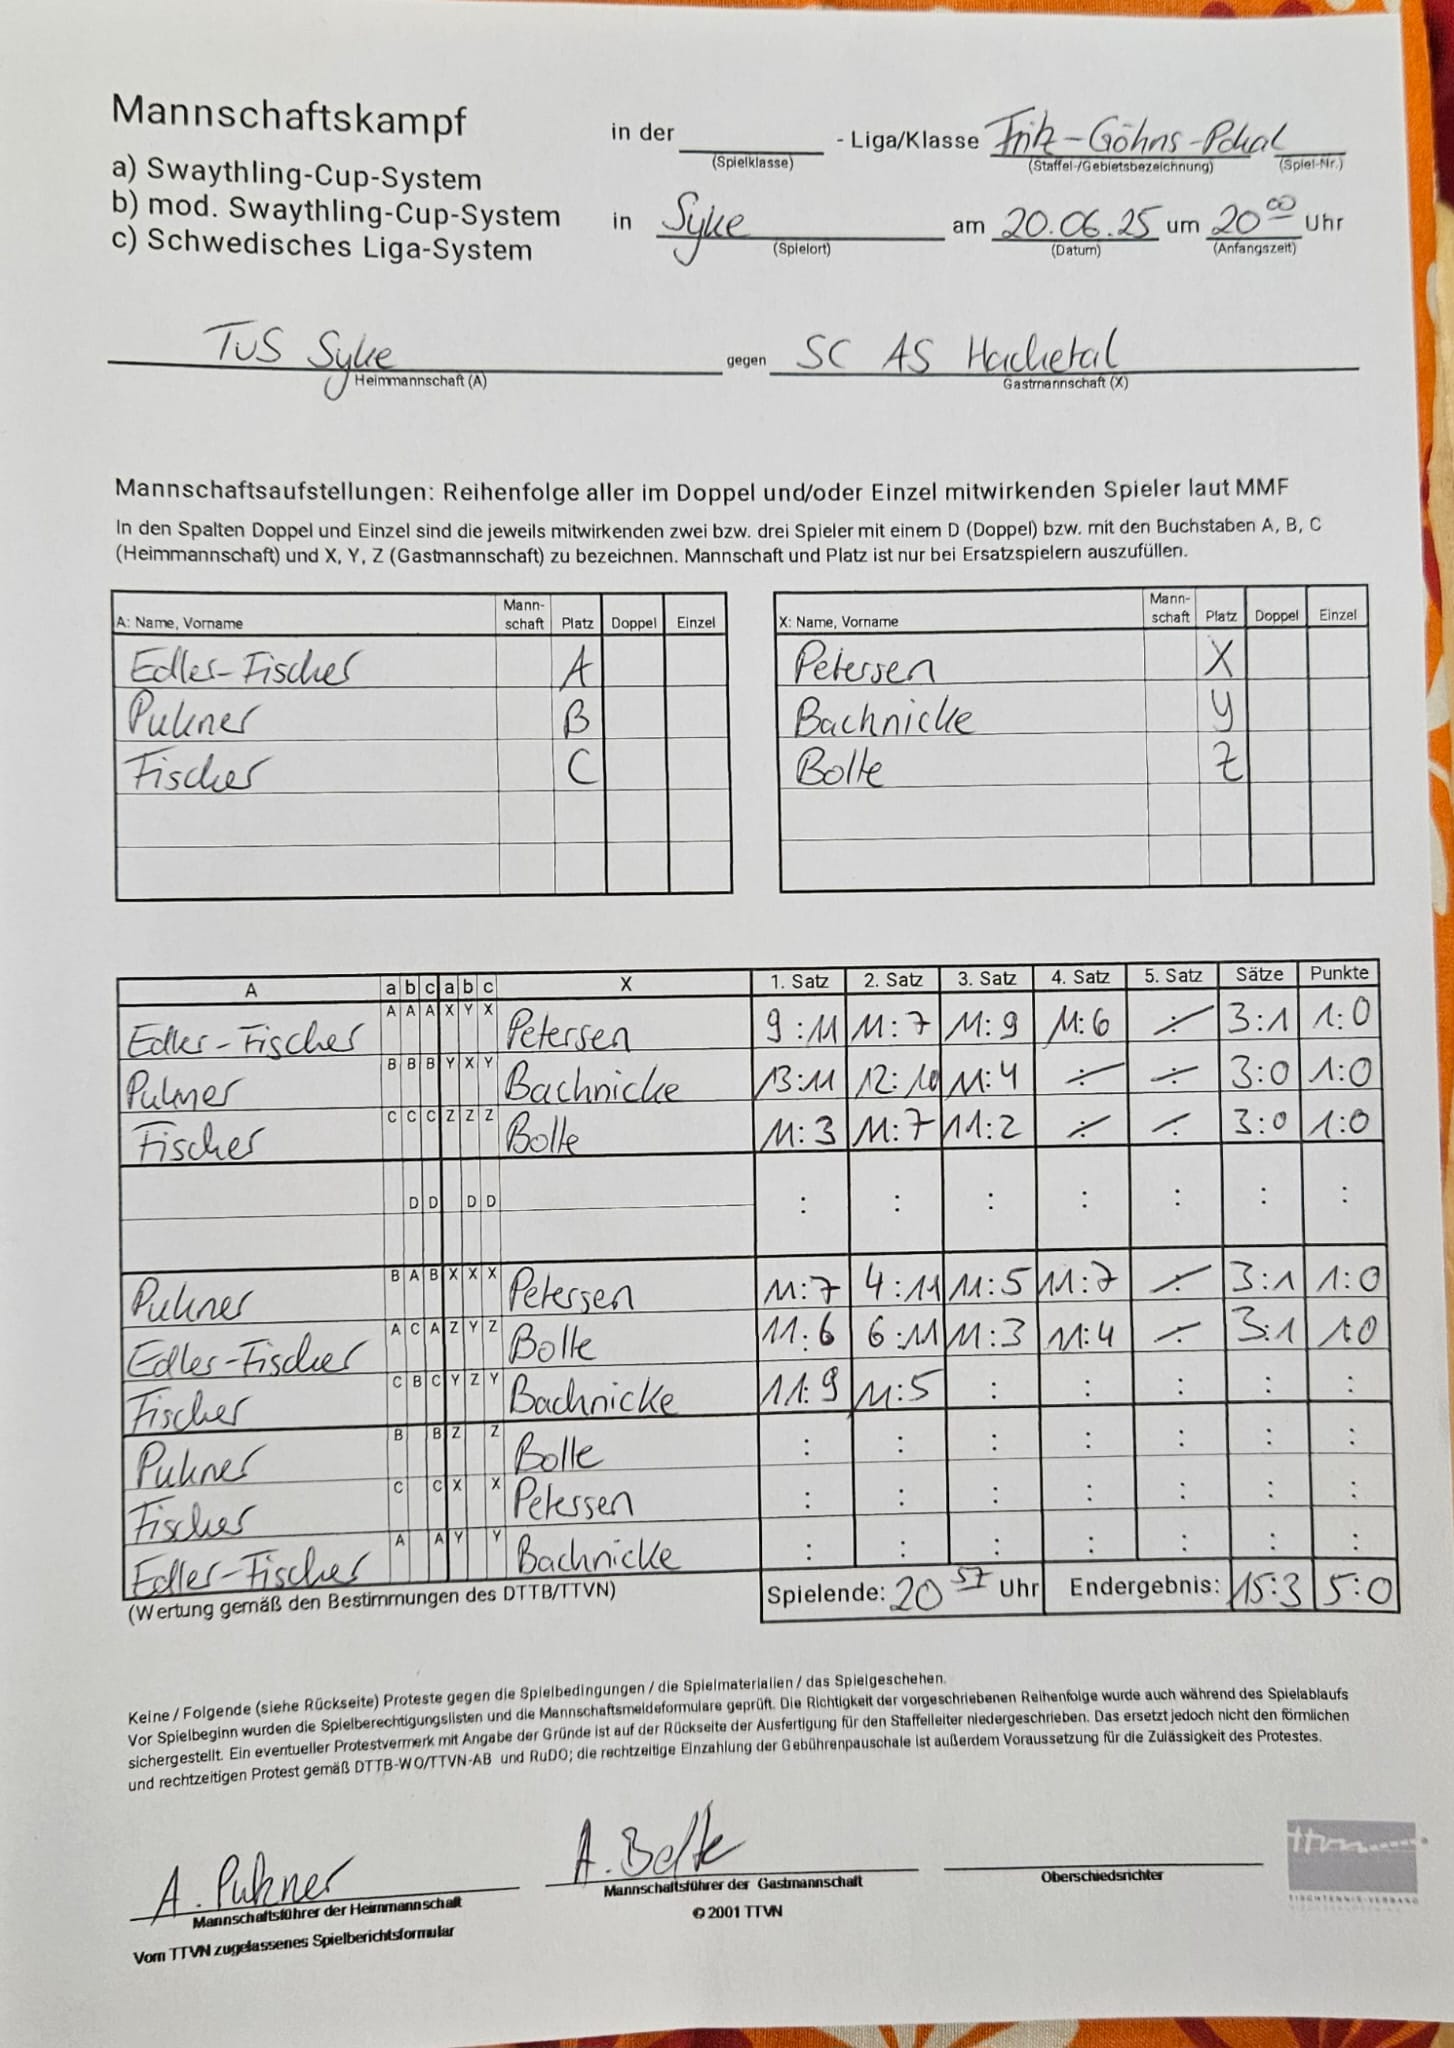 Mannschaftskampf
a) Swaythling-Cup-System
b) mod. Swaythling-Cup-System
c) Schwedisches Liga-System
in der - Liga/Klasse Fritz-Göhns-Pokal
(Spielklasse) (Staffel-/Gebietsbezeichnung) (Spiel-Nr.)
in Syke am 20.06.25 um 20 00 Uhr
(Spielort) (Datum) (Anfangszeit)
TuS Syke gegen SC AS Hachetal
Heimmannschaft (A) Gastmannschaft (X)
Mannschaftsaufstellungen: Reihenfolge aller im Doppel und/oder Einzel mitwirkenden Spieler laut MMF
In den Spalten Doppel und Einzel sind die jeweils mitwirkenden zwei bzw. drei Spieler mit einem D (Doppel) bzw. mit den Buchstaben A, B, C
(Heimmannschaft) und X, Y, Z (Gastmannschaft) zu bezeichnen. Mannschaft und Platz ist nur bei Ersatzspielern auszufüllen.
A: Name, Vorname Mann-schaft Platz Doppel Einzel
Edler-Fischer A
Pukner B
Fischer C
X: Name, Vorname Mann-schaft Platz Doppel Einzel
Petersen X
Bachnicke Y
Bolte Z
A a b c a b c X 1. Satz 2. Satz 3. Satz 4. Satz 5. Satz Sätze Punkte
Edler-Fischer A A A X Y X Petersen 9:11 11:7 11:9 11:6 : 3:1 1:0
Pukner B B B Y X Y Bachnicke 13:11 12:10 11:4 : : 3:0 1:0
Fischer C C C Z Z Z Bolte 11:3 11:7 11:2 : : 3:0 1:0
D D D D : : : : : : :
Pukner B A B X X X Petersen 11:7 4:11 11:5 11:7 : 3:1 1:0
Edler-Fischer A C A Z Y Z Bolte 11:6 6:11 11:3 11:4 : 3:1 1:0
Fischer C B C Y Z Y Bachnicke 11:9 11:5 : : : : :
Pukner B B Z Z Bolte : : : : : : :
Fischer C C X X Petersen : : : : : : :
Edler-Fischer A A Y Y Bachnicke : : : : : : :
(Wertung gemäß den Bestimmungen des DTTB/TTVN) Spielende: 20 57 Uhr Endergebnis: 15:3 5:0
Keine / Folgende (siehe Rückseite) Proteste gegen die Spielbedingungen / die Spielmaterialien / das Spielgeschehen.
Vor Spielbeginn wurden die Spielberechtigungslisten und die Mannschaftsmeldeformulare geprüft. Die Richtigkeit der vorgeschriebenen Reihenfolge wurde auch während des Spielablaufs
sichergestellt. Ein eventueller Protestvermerk mit Angabe der Gründe ist auf der Rückseite der Ausfertigung für den Staffelleiter niedergeschrieben. Das ersetzt jedoch nicht den förmlichen
und rechtzeitigen Protest gemäß DTTB-WO/TTVN-AB und RuDO; die rechtzeitige Einzahlung der Gebührenpauschale ist außerdem Voraussetzung für die Zulässigkeit des Protestes.
A. Pukner A. Bolte
Mannschaftsführer der Heimmannschaft Mannschaftsführer der Gastmannschaft Oberschiedsrichter
© 2001 TTVN
Vom TTVN zugelassenes Spielberichtsformular
ttvn
TISCHTENNIS-VERBAND